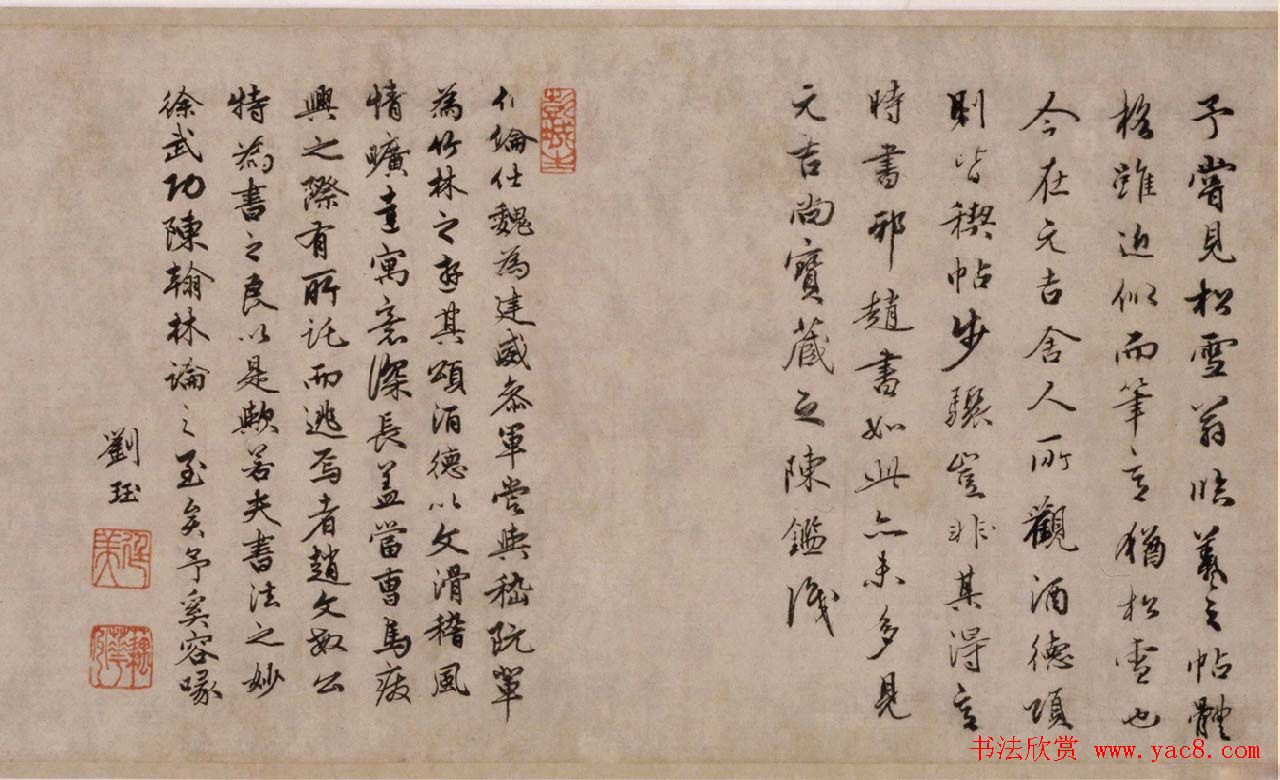 予嘗見松雪翁臨羲之帖體
格雖近似而筆意猶松雪也
今在元吉舍人所觀酒德頌
則皆稧帖步驟豈非其得意
時書邪趙書如此亦未多見
元吉尚寶藏之陳鑑識
彭城
伯倫仕魏為建威參軍嘗與嵇阮輩
為竹林之遊其頌酒德以文滑稽風
情曠達寓意深長蓋當曹馬疲
興之際有所託而逃焉者趙文敏公
特為書之良以是歟若夫書法之妙
徐武功陳翰林論之至矣予奚容喙
劉珏
廷美
书法欣赏 www.yac8.com